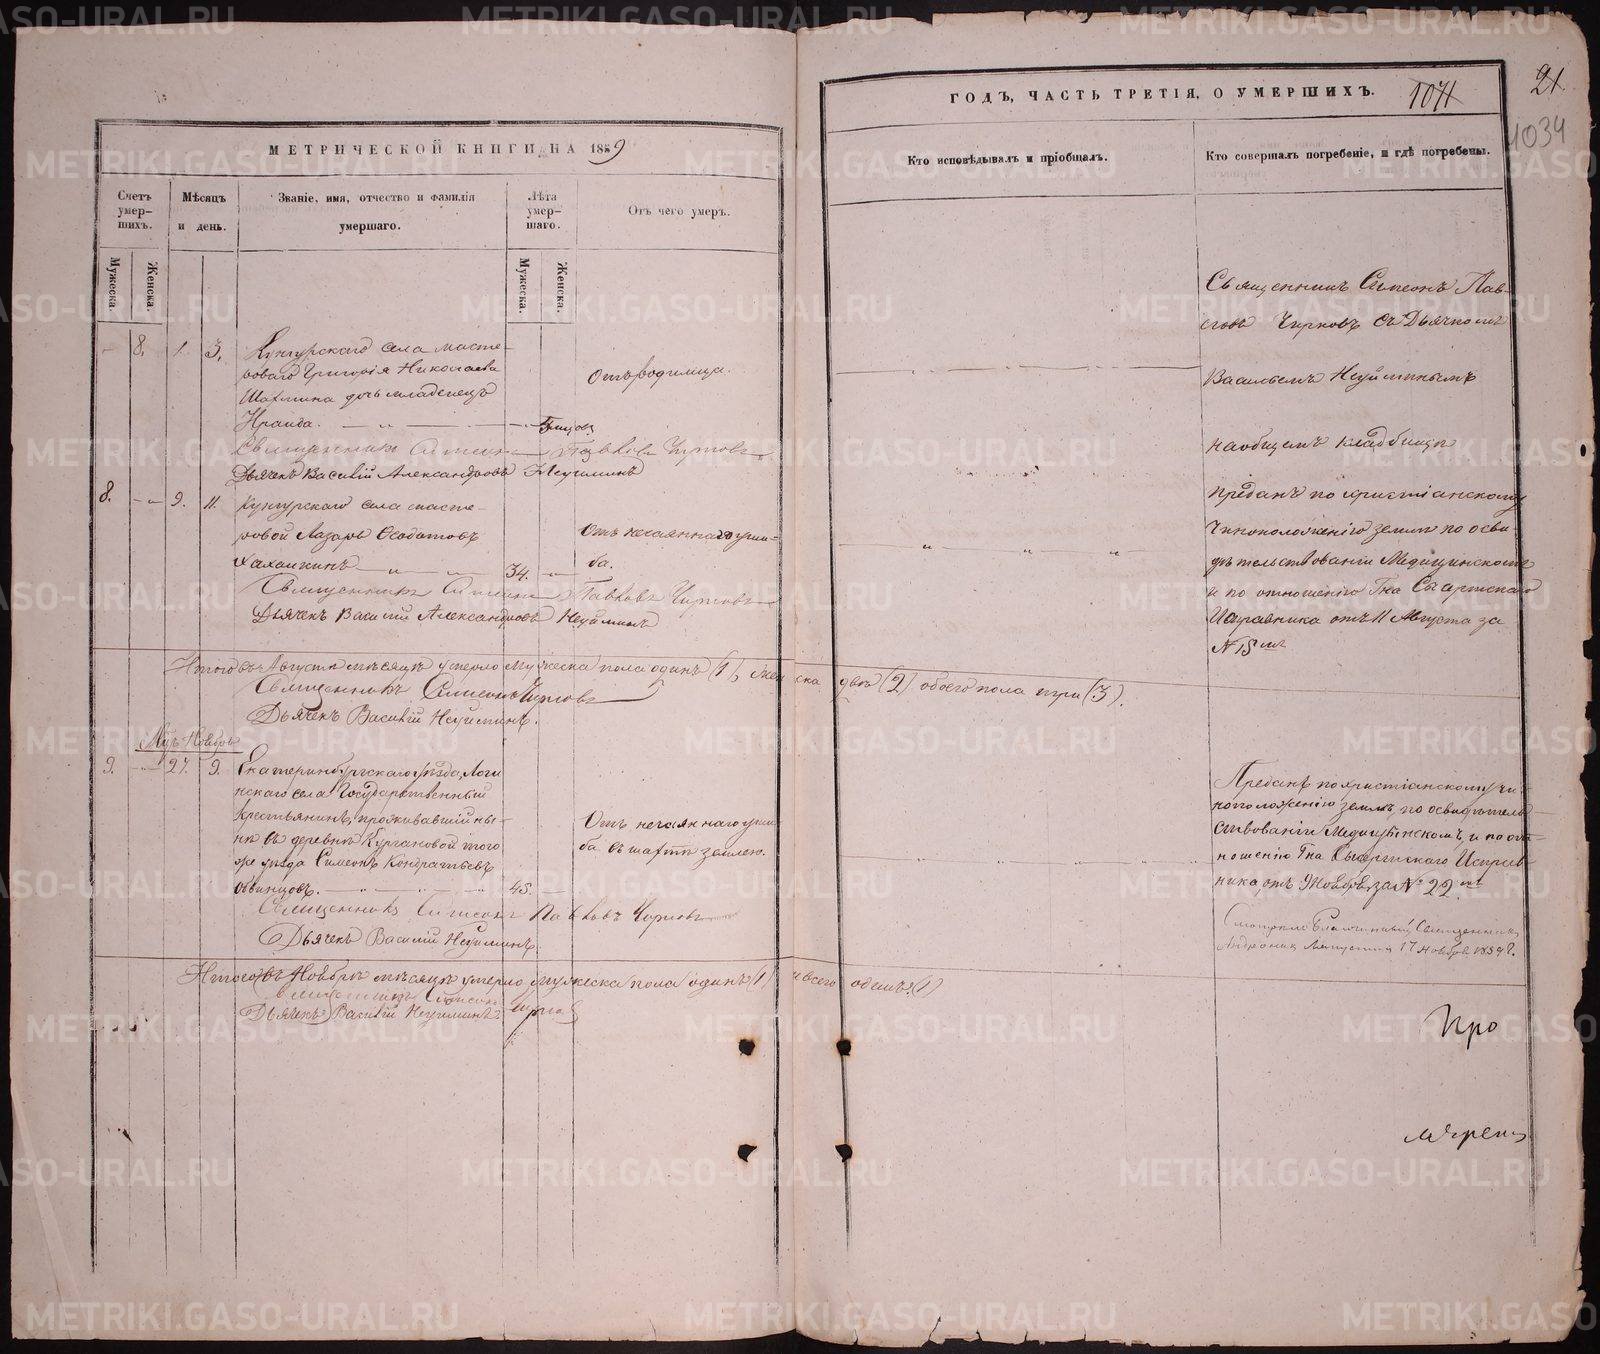 МЕТРИЧЕСКОЙ КНИГИ НА 1859
Счетъ умер-шихъ.
Мѣсяцъ и день.
Званіе, имя, отчество и фамилія умершаго.
Лѣта умер-шаго.
Отъ чего умеръ.
Мужеска.
Женска.
Мужеска.
Женска.
8. 1. 3. Кунгурскаго села масте-
роваго Григорія Николаева
Шахмина дочь младенецъ
Отъ родимца.
Священникъ Симеонъ Павловъ Чирковъ
Дьячекъ Василій Александровъ Неуйминъ
8. 9. 11. Кунгурскаго села масте-
ровой Лазарь
34.
Отъ нечаяннаго уши-
ба.
Священникъ Симеонъ Павловъ Чирковъ
Дьячекъ Василій Александровъ Неуйминъ
Итого въ Августѣ мѣсяцѣ умерло мужеска пола одинъ (1), женска двѣ (2) обоего пола три (3).
Священникъ Симеонъ Чирковъ
Дьячекъ Василій Неуйминъ.
Мцъ Ноябрь
9. 27. 9. Екатеринбургскаго уѣзда, Логи
нскаго села Государственный
крестьянинъ, проживавшій ны-
нѣ въ деревнѣ Кургановой того
же уѣзда Симеонъ Кондратьевъ
45.
Отъ нечаяннаго уши
ба въ шахтѣ землею.
Священникъ Симеонъ Павловъ Чирковъ
Дьячекъ Василій Неуйминъ.
Итого въ Ноябрѣ мѣсяцѣ умерло мужеска пола одинъ (1) и всего одинъ (1)
Священникъ Симеонъ Чирковъ
Дьячекъ Василій Неуйминъ
ГОДЪ, ЧАСТЬ ТРЕТІЯ, О УМЕРШИХЪ.
1071
21
1034
Кто исповѣдывалъ и пріобщалъ.
Кто совершалъ погребеніе, и гдѣ погребены.
Священникъ Симеонъ Пав-
ловъ Чирковъ съ Дьячкомъ
Васильемъ Неуйминымъ
на общемъ кладбищѣ
Преданъ по христіанскому
чиноположенію землѣ по осви-
дѣтельствованіи Медицинскомъ
и по отношенію Гна Сысертскаго
Исправника отъ 11 Августа за
№ 15мъ
Преданъ по христіанскому чи-
ноположенію землѣ, по освидѣтель
ствованіи Медицинскомъ, и по от-
ношенію Гна Сысертскаго Исправ-
ника отъ 9 Ноября за № 22мъ
Смотрѣлъ Благочинный Священникъ
17 Ноября 1859 г.
METRIKI.GASO-URAL.RU